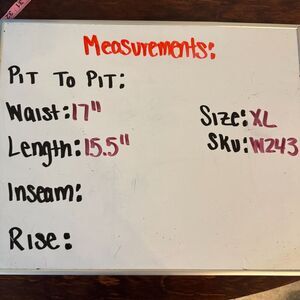 Measurements:
Pit To Pit:
Waist: 17" Size: XL
Length: 15.5" Sku: W243
Inseam:
Rise: